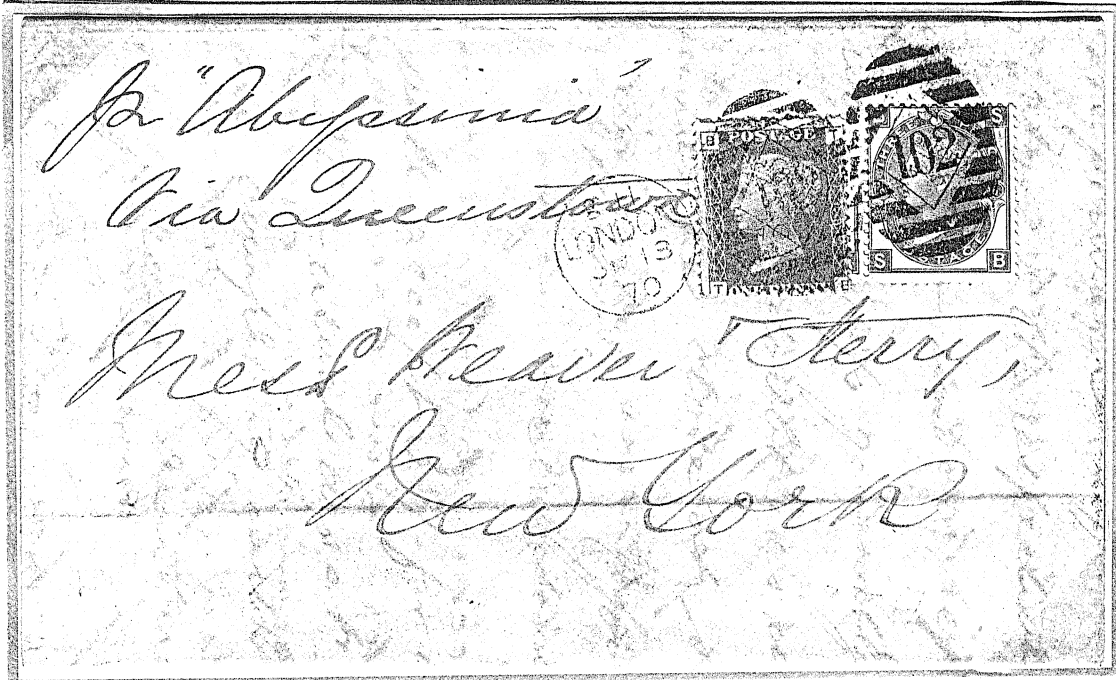 pr "Abyssinia"
Via Queenstown
LONDON
13
70
B POSTAGE T
T ONE PENNY B
102
S
S B
Mess Weaver Sterry,
New York